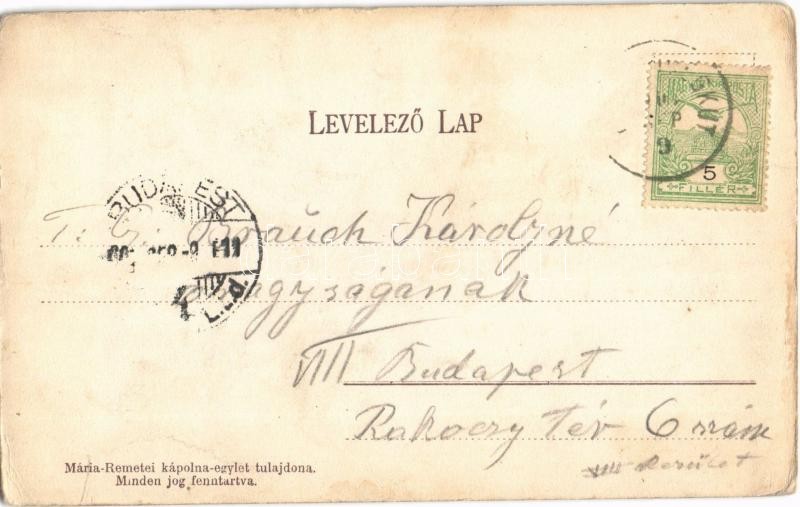 LEVELEZŐ LAP
5
FILLÉR
BUDAPEST
T. G. Brauch Károlyné
nagyságának
VIII Budapest
Rakoczy Tér 6 szám
VIII Kerület
Mária-Remetei kápolna-egylet tulajdona.
Minden jog fenntartva.